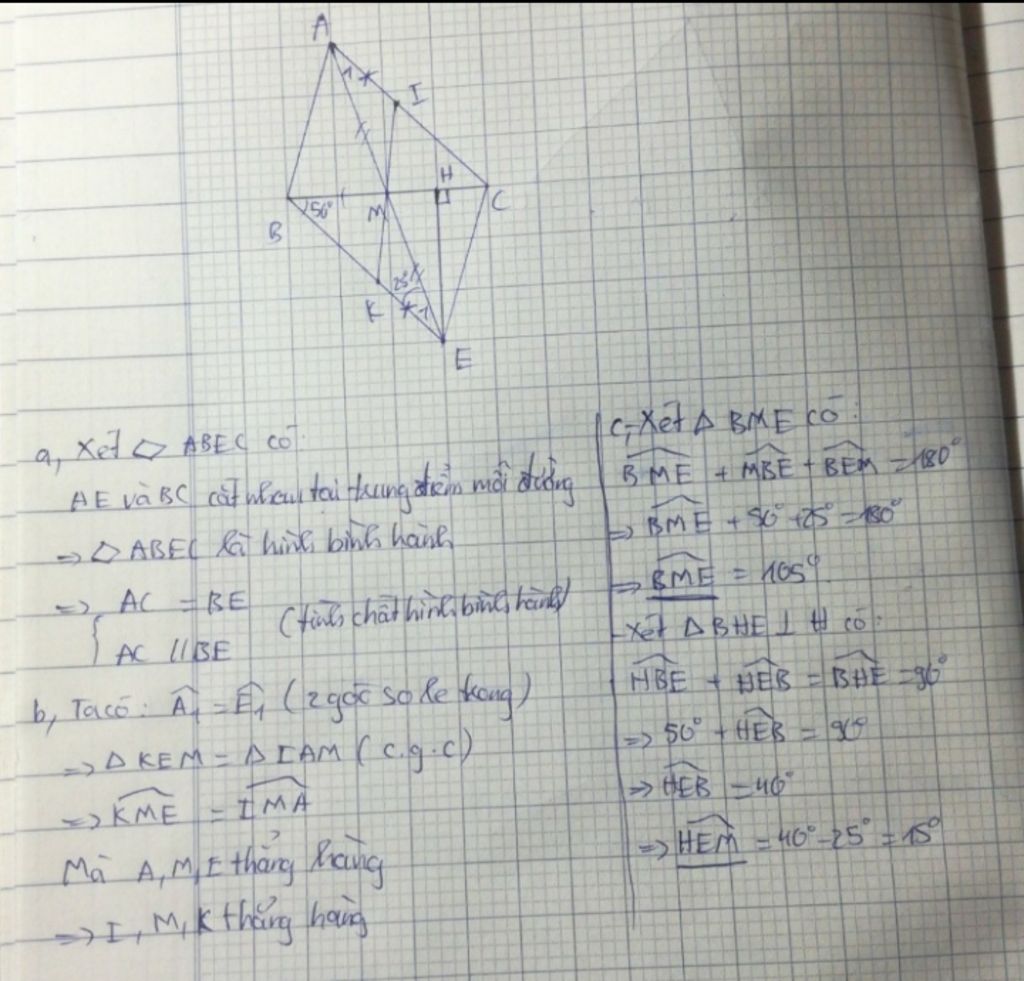 A
1
I
H
B
50°
M
C
25°
K
1
E
a, Xét ▱ ABEC có:
AE và BC cắt nhau tại trung điểm mỗi đường
=> ▱ ABEC là hình bình hành
=> { AC = BE
AC // BE
(tính chất hình bình hành)
b, Ta có: Â₁ = Ê₁ (2 góc so le trong)
=> Δ KEM = Δ IAM (c.g.c)
=> KME = IMA
Mà A, M, E thẳng hàng
=> I, M, K thẳng hàng
c, Xét Δ BME có:
BME + MBE + BEM = 180°
=> BME + 50° + 25° = 180°
=> BME = 105°
Xét Δ BHE ⊥ H có:
HBE + HEB = BHE = 90°
=> 50° + HEB = 90°
=> HEB = 40°
=> HEM = 40° - 25° = 15°